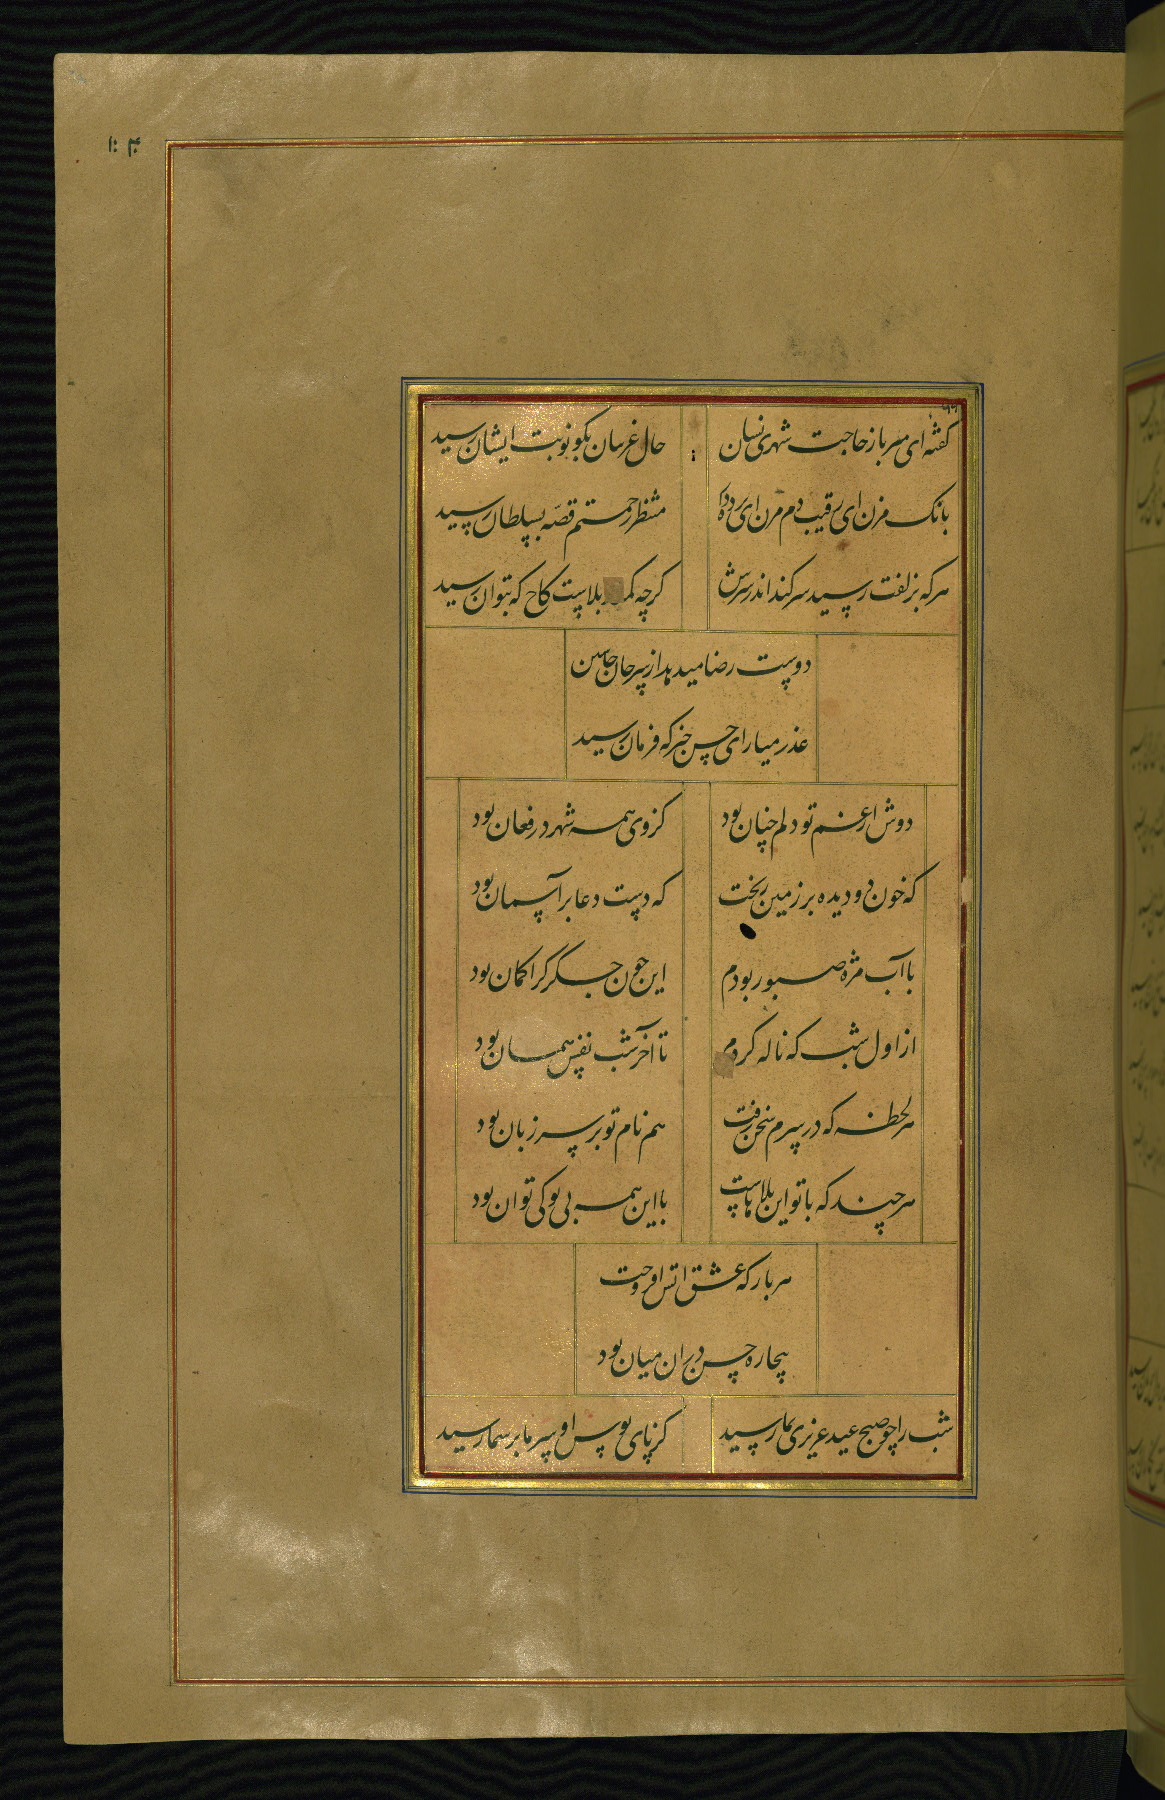 گفته ای میر باز حاجت شهری نسان
حال غریبان بگو نوبت ایشان رسید
بانک مزن ای رقیب دم مزن ای
منتظر رحمتم قصه بسلطان رسید
هر که بزلفت رسید سر کند اندر سرش
کرچه بلاست کاح که بتوان رسید
دوست رضا میدهد از سر جان حسن
عذر میار ای حسن خیز که فرمان رسید
دوش از غم تو دلم چنان بود
کز وی همه شهر در فغان بود
که خون دو دیده بر زمین ریخت
که دست دعا بر آسمان بود
با آب مژه صبور بودم
این خون جگر کرا کمان بود
از اول شب که ناله کردم
تا آخر شب نفس همان بود
هر لحظه که در سرم سخن رفت
هم نام تو بر سر زبان بود
هر چند که با تو این بلاهاست
با این همه بی تو کی توان بود
هر بار که عشق اتش افروخت
بیچاره حسن در ان میان بود
شب را چو صبح عید عزیزی بما رسید
کز پای بوس او سر ما بر سما رسید